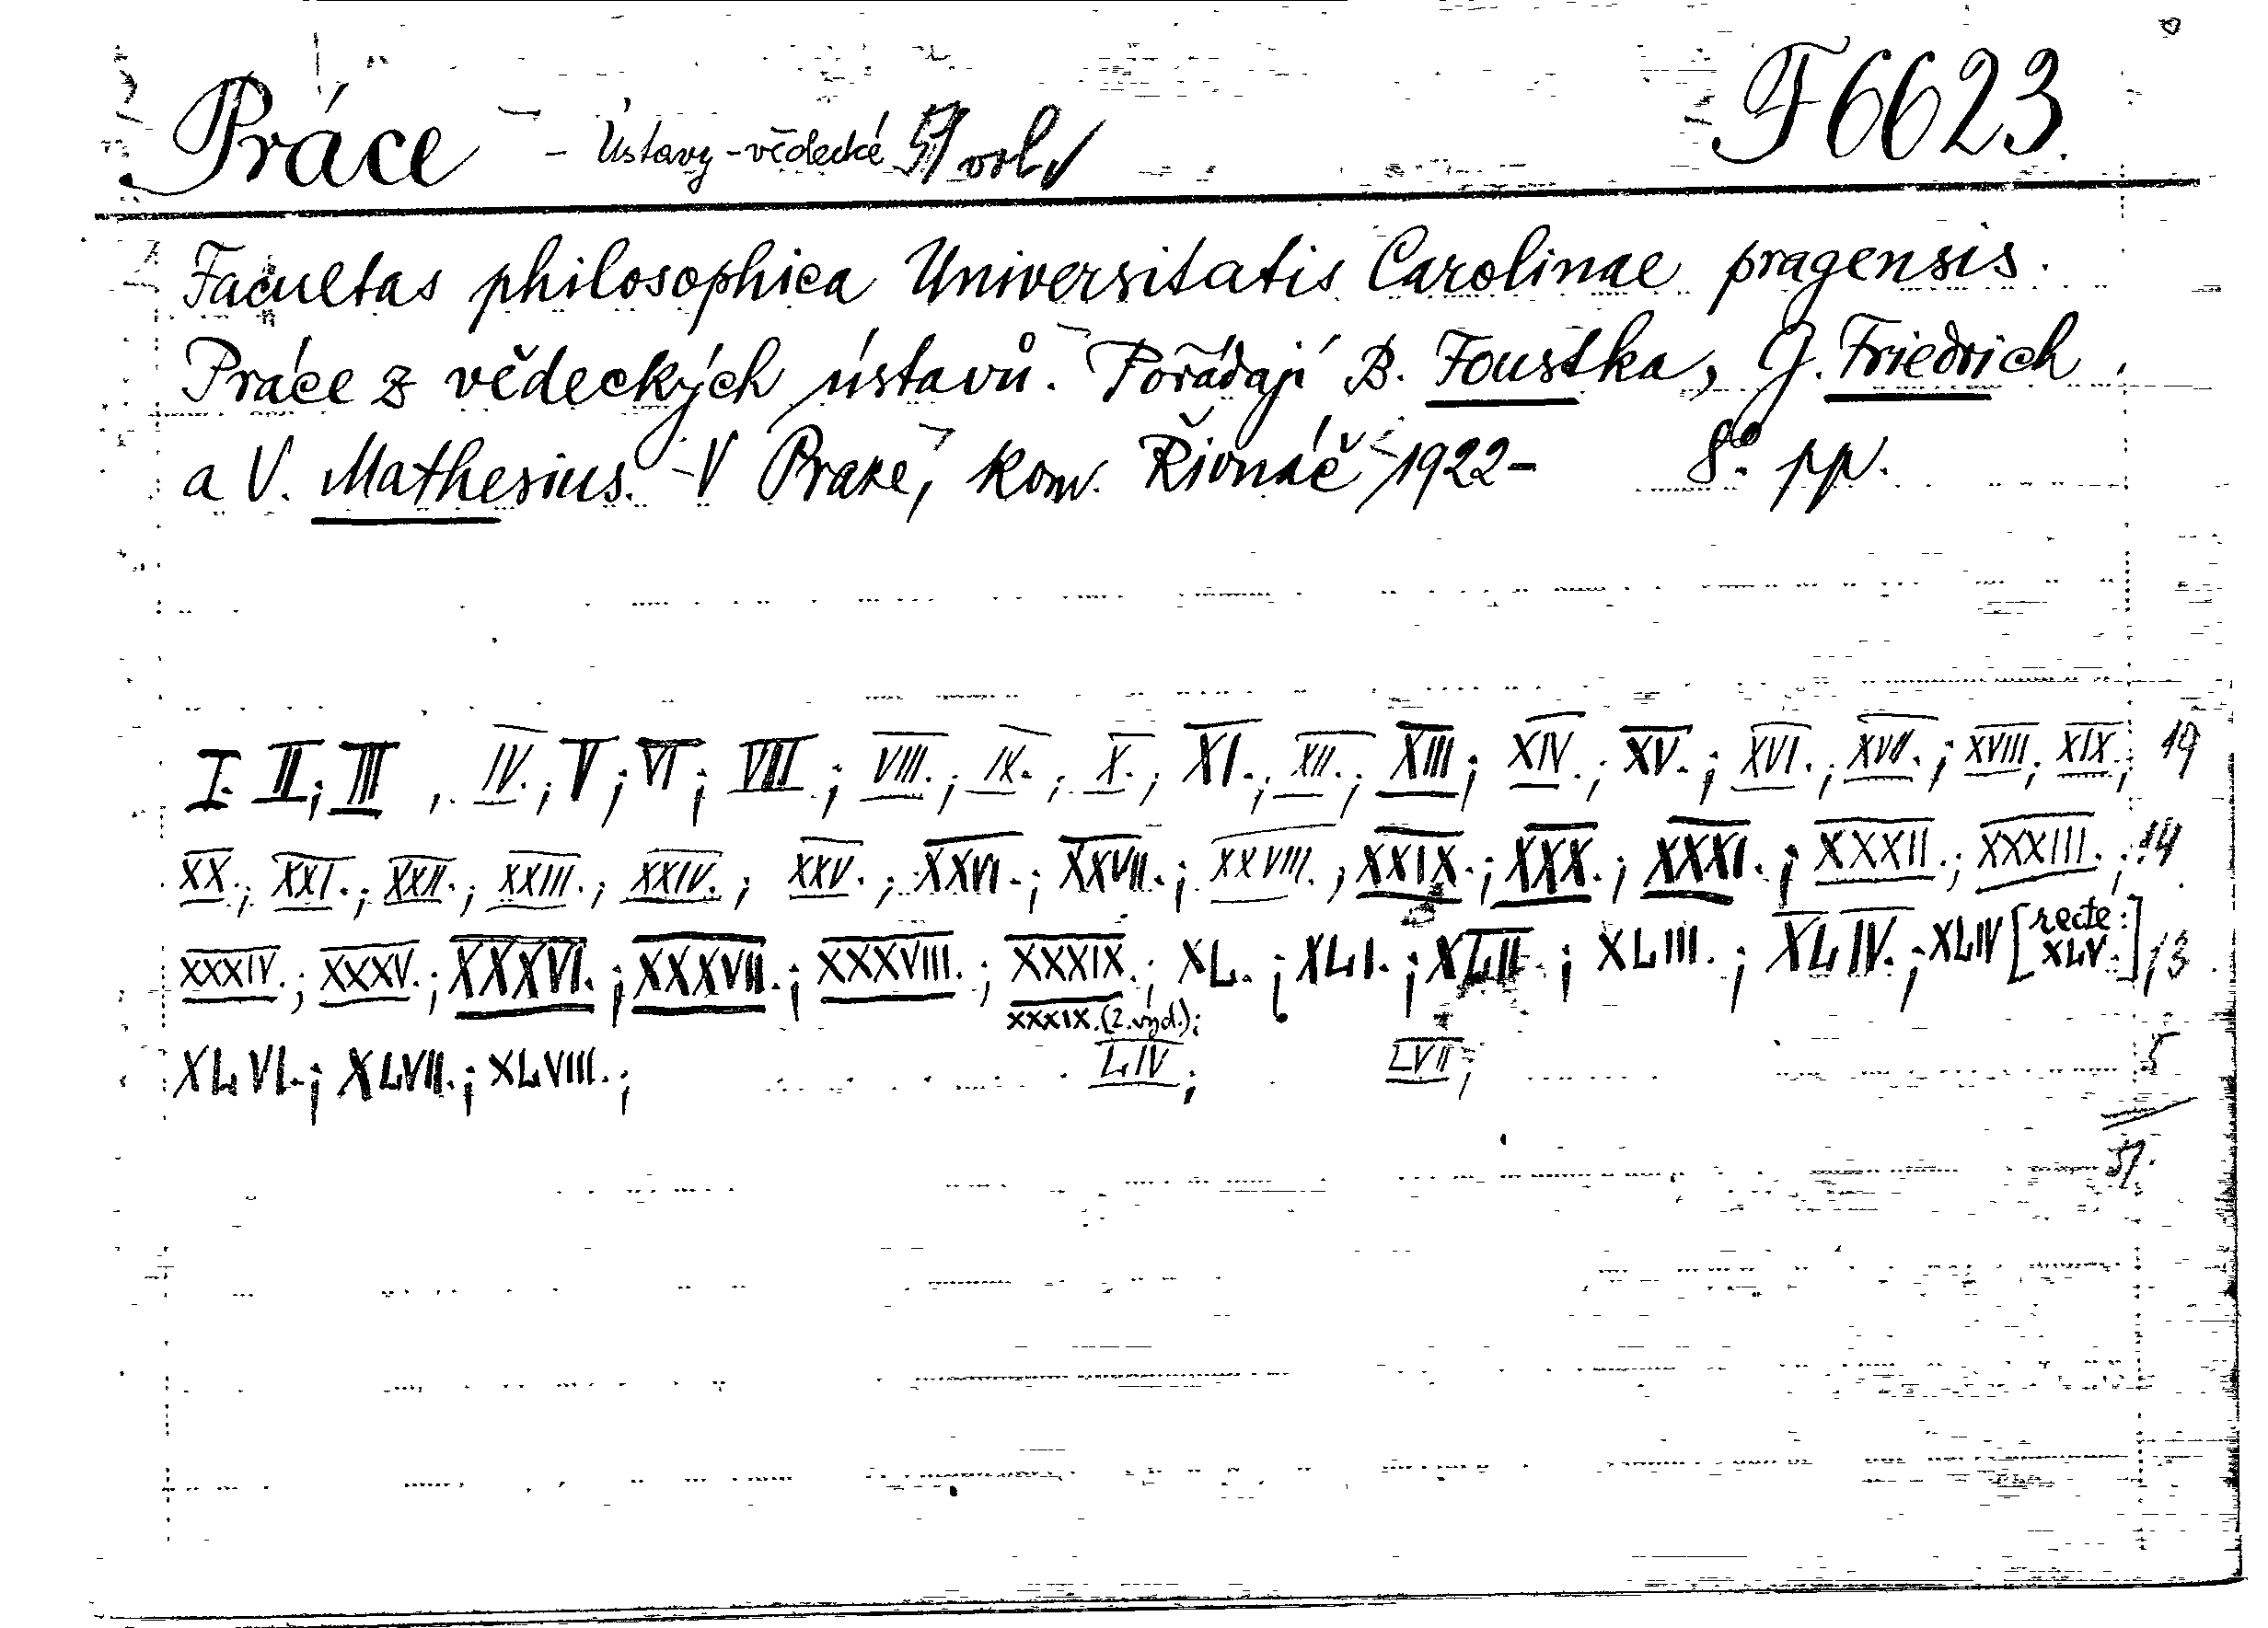 Práce - Ústavy-vědecké 51 vol. F 6623.
Facultas philosophica Universitatis Carolinae pragensis.
Práce z vědeckých ústavů. Pořádají B. Foustka, G. Friedrich
a V. Mathesius. V Praze, kom. Řivnáč 1922- 8º. pp.
I. II; III, IV.; V; VI; VII.; VIII.; IX.; X.; XI.; XII.; XIII; XIV.; XV.; XVI.; XVII.; XVIII; XIX; 19
XX.; XXI.; XXII.; XXIII.; XXIV.; XXV.; XXVI.; XXVII.; XXVIII.; XXIX.; XXX.; XXXI.; XXXII.; XXXIII.; 14
XXXIV.; XXXV.; XXXVI.; XXXVII.; XXXVIII.; XXXIX.; XL.; XLI.; XLII.; XLIII.; XLIV.; XLIV [recte: XLV.] 13
XXXIX. (2. vyd.);
XLVI.; XLVII.; XLVIII.; LIV; LVII; 5
51.